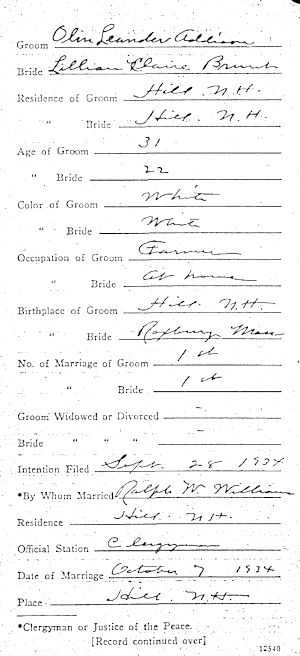 Groom Olin Leander Addison
Bride Lillian Claire
Residence of Groom Hill. N.H.
" Bride Hill. N.H.
Age of Groom 31
" Bride 22
Color of Groom White
" Bride White
Occupation of Groom Farmer
" Bride At home
Birthplace of Groom Hill. N.H.
" Bride Roxbury Mass
No. of Marriage of Groom 1 st
" Bride 1 st
Groom Widowed or Divorced -
Bride " " " -
Intention Filed Sept. 28 1934
*By Whom Married Ralph W. Williams
Residence Hill. N.H.
Official Station Clergyman
Date of Marriage October 7 1934
Place Hill. N.H.
*Clergyman or Justice of the Peace.
[Record continued over]
12540